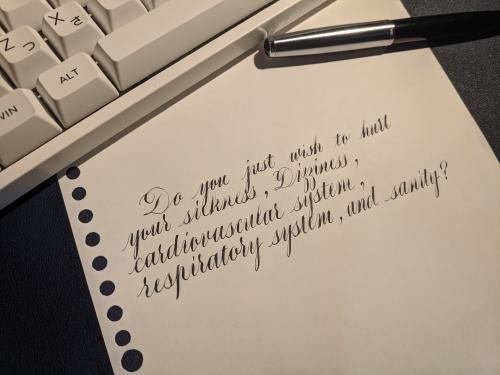 Z
つ
X
さ
WIN
ALT
Do you just wish to hurt
your sickness, Dizziness,
cardiovascular system,
respiratory system, and sanity?